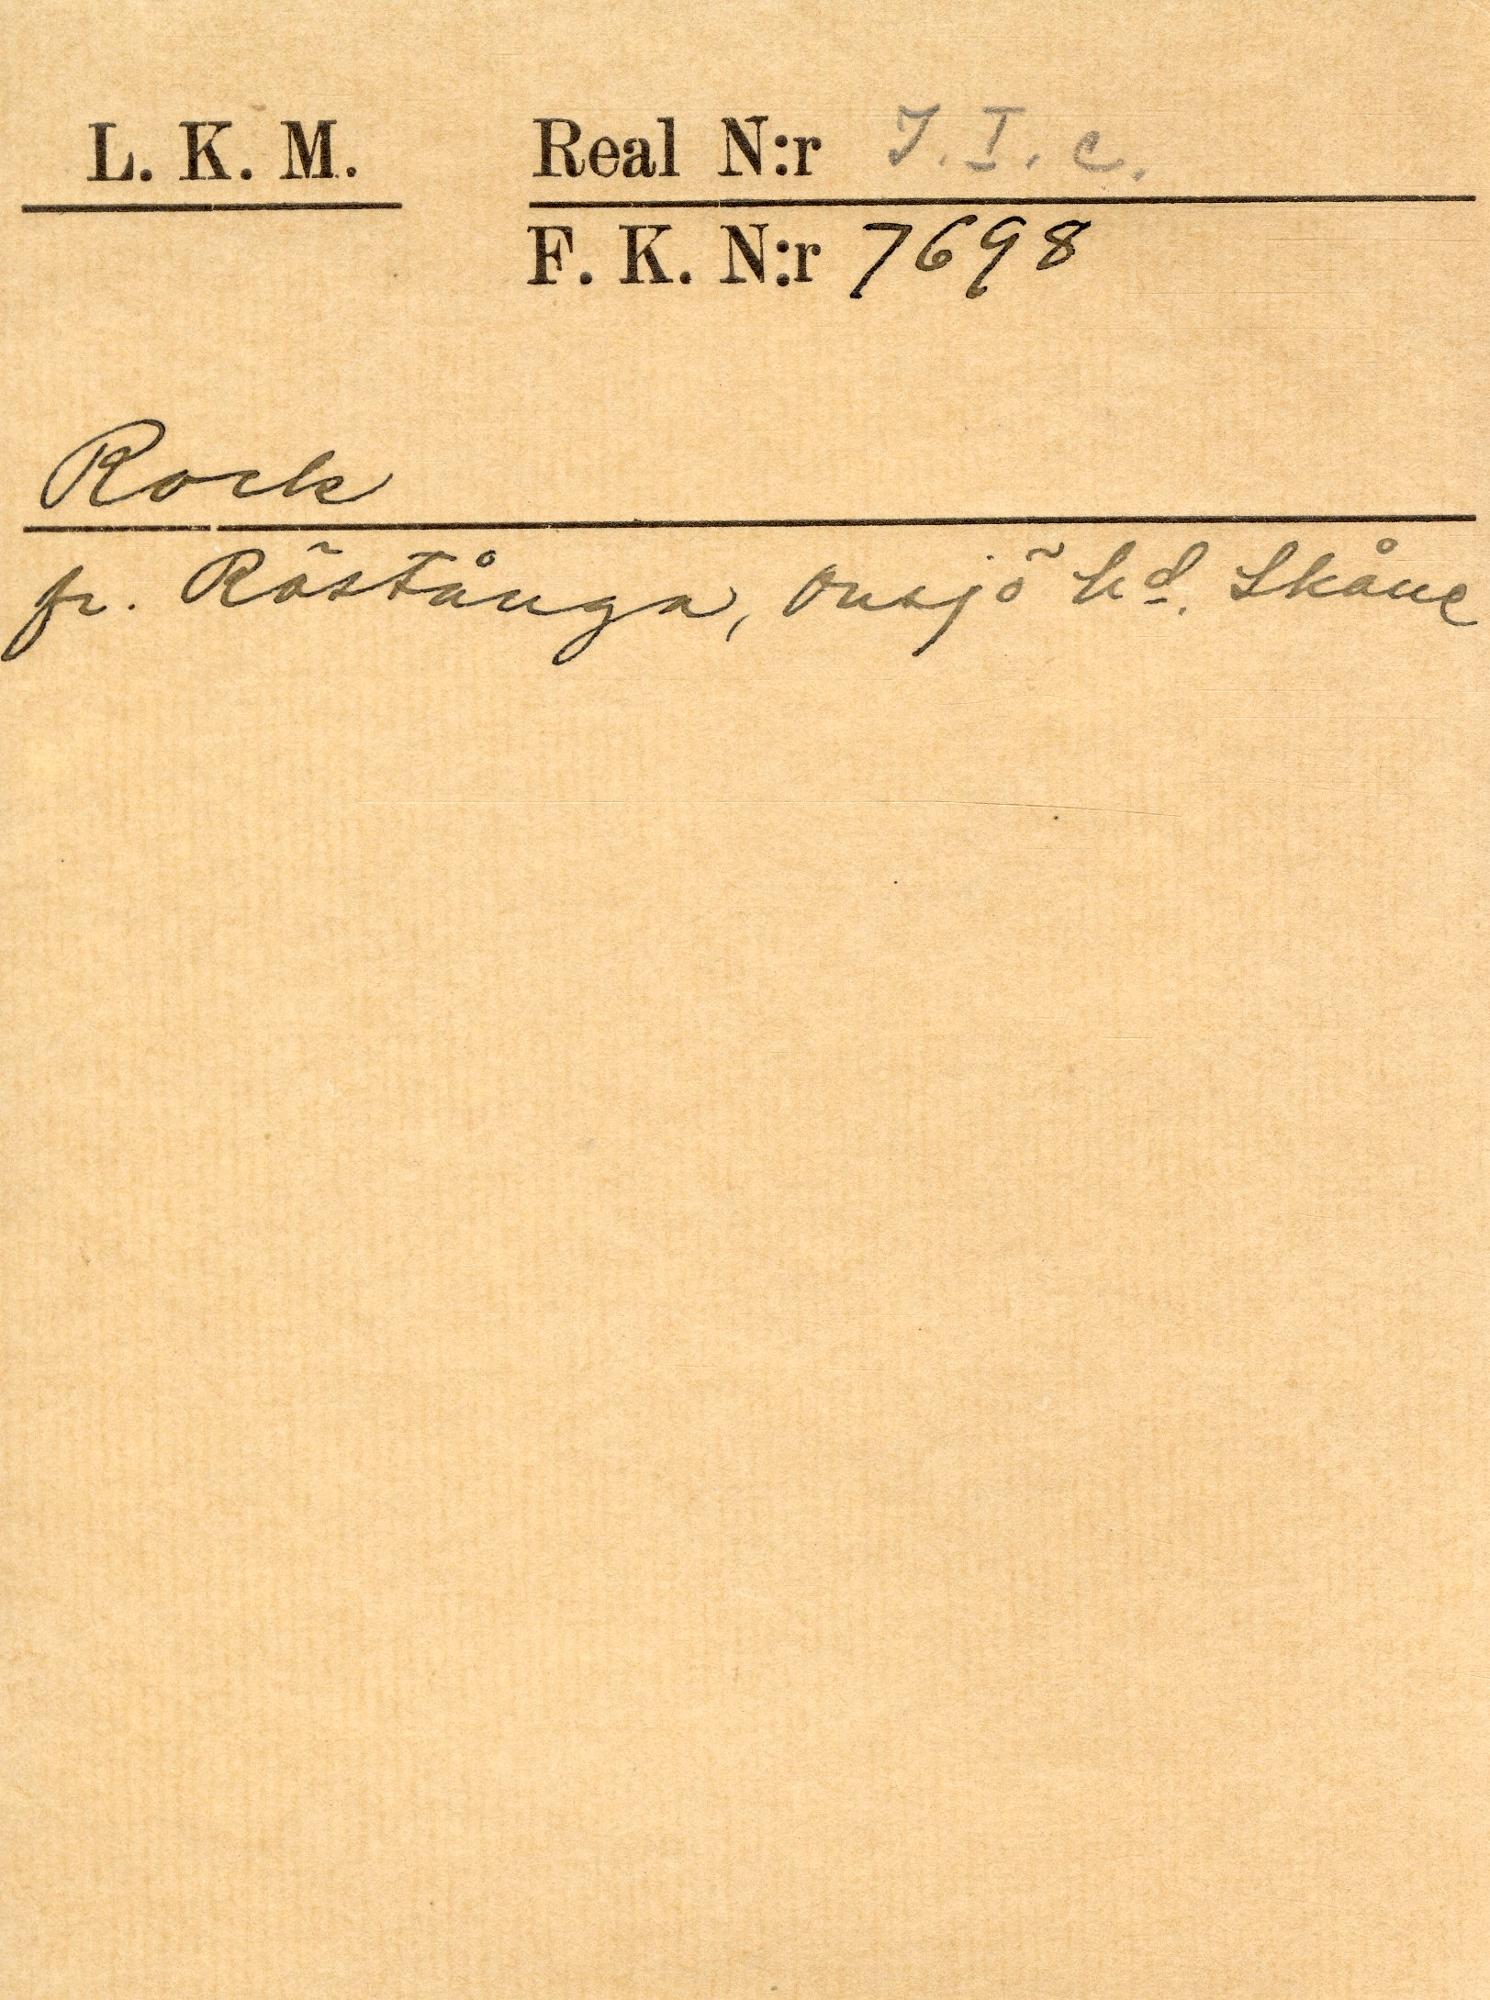 L. K. M.
Real N:r J. I. c.
F. K. N:r 7698
Rock
fr. Röstånga, Onsjö hd. Skåne